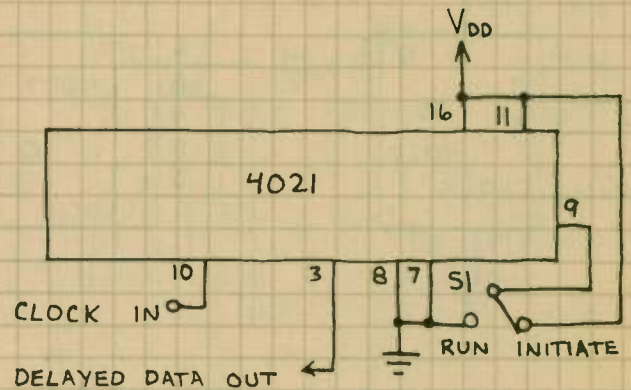 VDD
16 11
4021
9
10 3 8 7 S1
CLOCK IN
RUN INITIATE
DELAYED DATA OUT